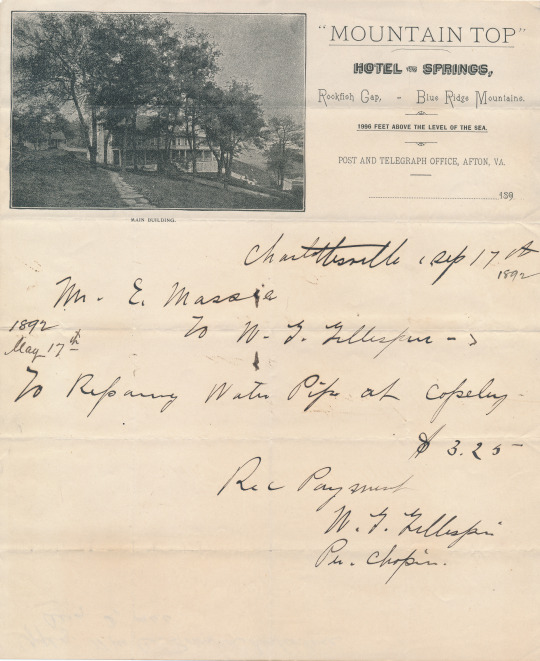 "MOUNTAIN TOP"
HOTEL AND SPRINGS,
Rockfish Gap, - Blue Ridge Mountains.
1996 FEET ABOVE THE LEVEL OF THE SEA.
POST AND TELEGRAPH OFFICE, AFTON, VA.
189
MAIN BUILDING.
Charlottesville, Sep 17th
1892
Mr. E. Massie
1892
To W. G. Gillespie
May 17th
To Repairing Water Pipe at Copeley
$3.25
Rec Payment
W. G. Gillespie
Per. Chopin.